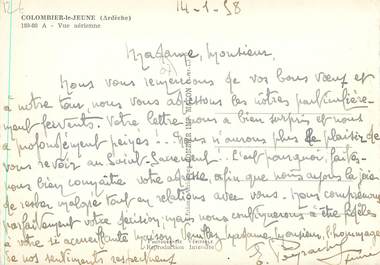 14-1-58
COLOMBIER-le-JEUNE (Ardèche)
189-60 A - Vue aérienne
Madame, Monsieur,
Nous vous remercions de vos bons vœux et
à notre tour, nous vous adressons les nôtres particulière-
ment fervents. Votre lettre nous a bien surpris et nous
a profondément peinés... Nous n'aurons plus le plaisir de
vous revoir au Saint-Sacrement... C'est pourquoi, faites
nous bien connaître votre adresse, afin que nous ayons la joie
de rester malgré tout en relations avec vous. Nous comprenons
parfaitement votre décision, mais nous continuerons à être fidèles
à votre si accueillante maison. Veuillez, Madame, Monsieur, l'hommage
de nos sentiments respectueux
Reproduction Interdite